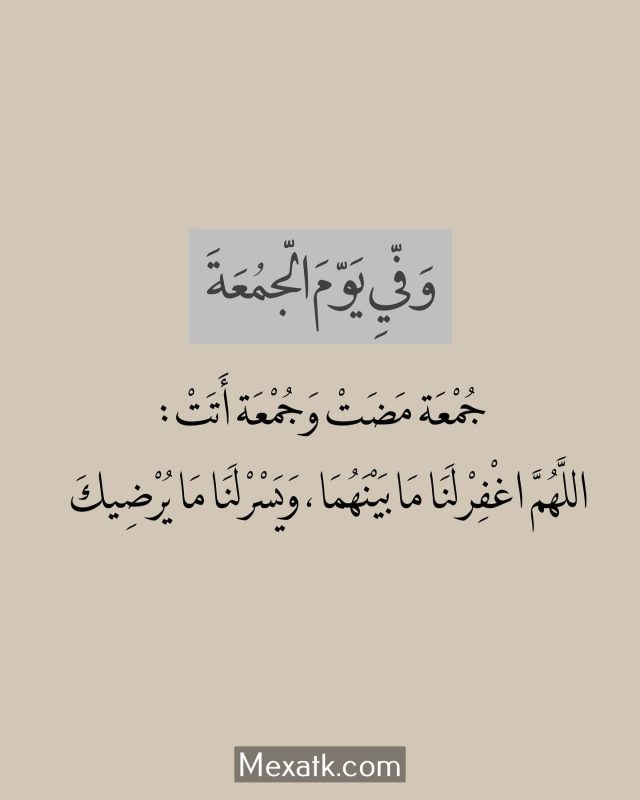 وَفّيِ يَوّمَ الّجمُعَةَ
جُمْعَة مَضَتْ وَجُمْعَة أَتَتْ :
اللَّهُمَّ اغْفِرْ لَنَا مَا بَيْنَهُمَا ، وَيَسْرْ لَنَا مَا يُرْضِيكَ
Mexatk.com